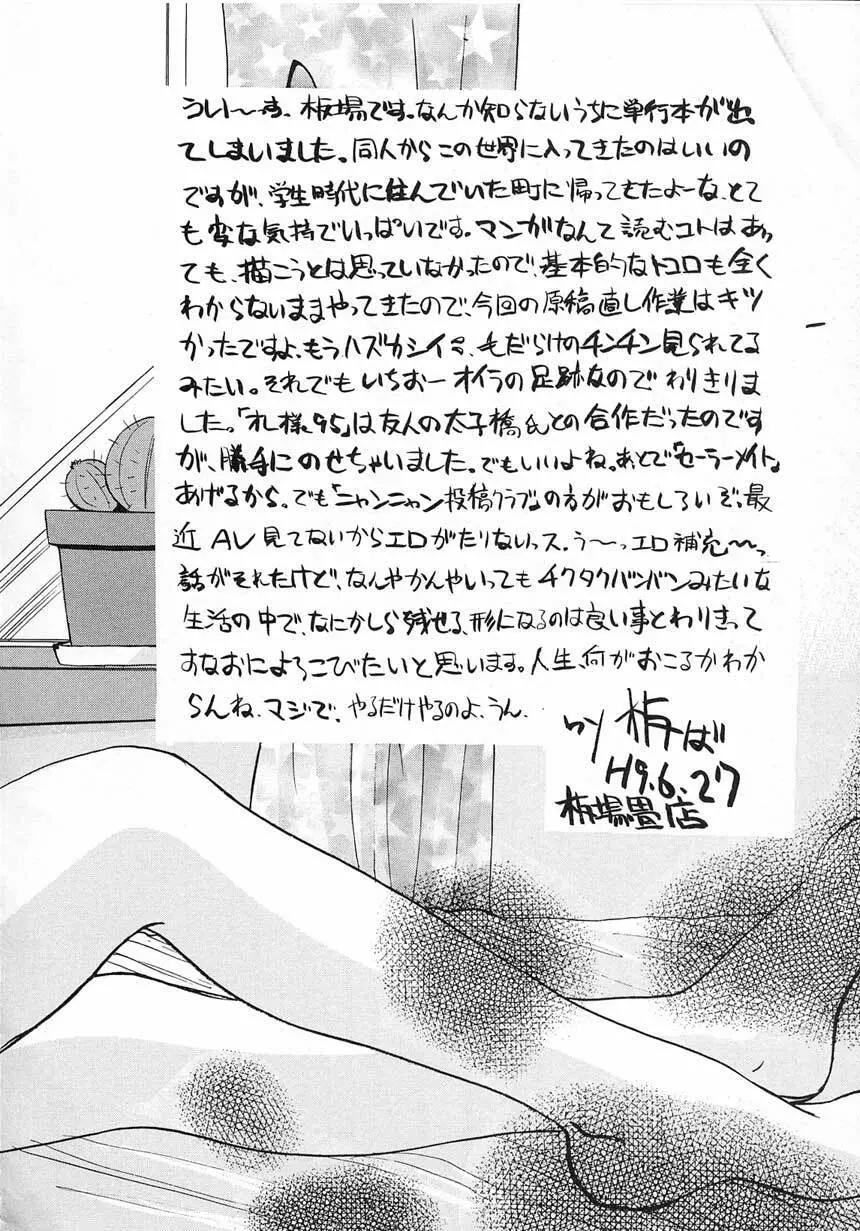 ういーす。板場です。なんか知らないうちに単行本が出
てしまいました。同人からこの世界に入ってきたのはいいの
ですが、学生時代に住んでいた町に帰ってきたよーな、とて
も変な気持でいっぱいです。マンガなんて読むコトはあっ
ても、描こうとは思っていなかったので、基本的なトコロも全く
わからないままやってきたので、今回の原稿直し作業はキツ
かったですよ、もうハズカシイ、毛だらけのチンチン見られてる
みたい。それでもいちおーオイラの足跡なのでわりきりま
した。「オレ様95」は友人の太子橋氏との合作だったのです
が、勝手にのせちゃいました。でもいいよね。あとで「セーラーメイト」
あげるから。でも「ニャンニャン投稿クラブ」の方がおもしろいぞっ最
近AV見てないからエロがたりないっス。う〜っエロ補充〜っ
話がそれたけど、なんやかんやいってもチクタクバンバンみたいな
生活の中で、なにかしら残せる、形になるのは良い事とわりきって
すなおによろこびたいと思います。人生、何がおこるかわか
らんね、マジで、やるだけやるのよ、うん。
板ば
H9.6.27
板場畳店